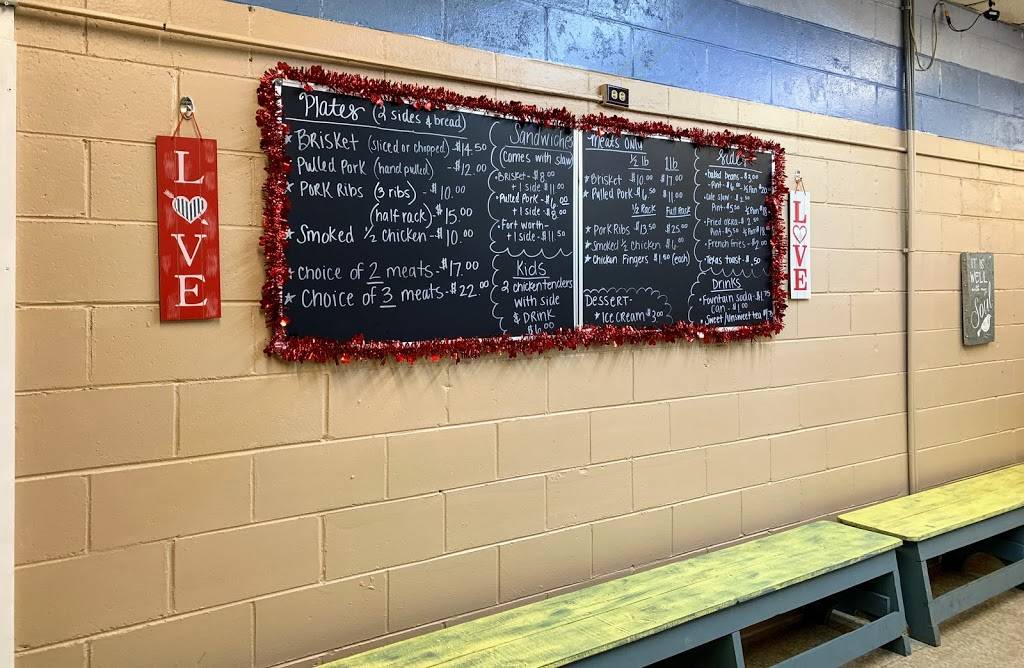 LOVE
Plates (2 sides & bread)
Brisket (sliced or chopped) -$14.50
Pulled Pork (hand pulled) -$12.00
Pork Ribs (3 ribs) - $10.00
(half rack) - $15.00
Smoked 1/2 Chicken - $10.00
choice of 2 meats - $17.00
choice of 3 meats - $22.00
Sandwiches
(comes with slaw)
Brisket - $8.00
+ 1 side $11.00
Pulled Pork - $6.00
+ 1 side - $8.00
Fort Worth -
+ 1 side - $11.50
Kids
2 chicken tenders
with side
& DRINK
$6.00
Meats Only
1/2 lb 1 lb
Brisket - $10.00 $17.00
Pulled Pork $6.50 $11.00
1/2 Rack Full Rack
Pork Ribs $13.50 $25.00
Smoked 1/2 chicken $6.00
Chicken Fingers $1.50 (each)
Dessert -
Ice cream $3.00
Sides
baked beans - $3.00
Pint - $6.00
Pint - $5.50
Fried okra - $2.50
French fries - $2.00
Texas toast - $.50
Drinks
Fountain soda -
can - $1.00
Sweet/Unsweet tea
LOVE
IT IS
WELL
Soul